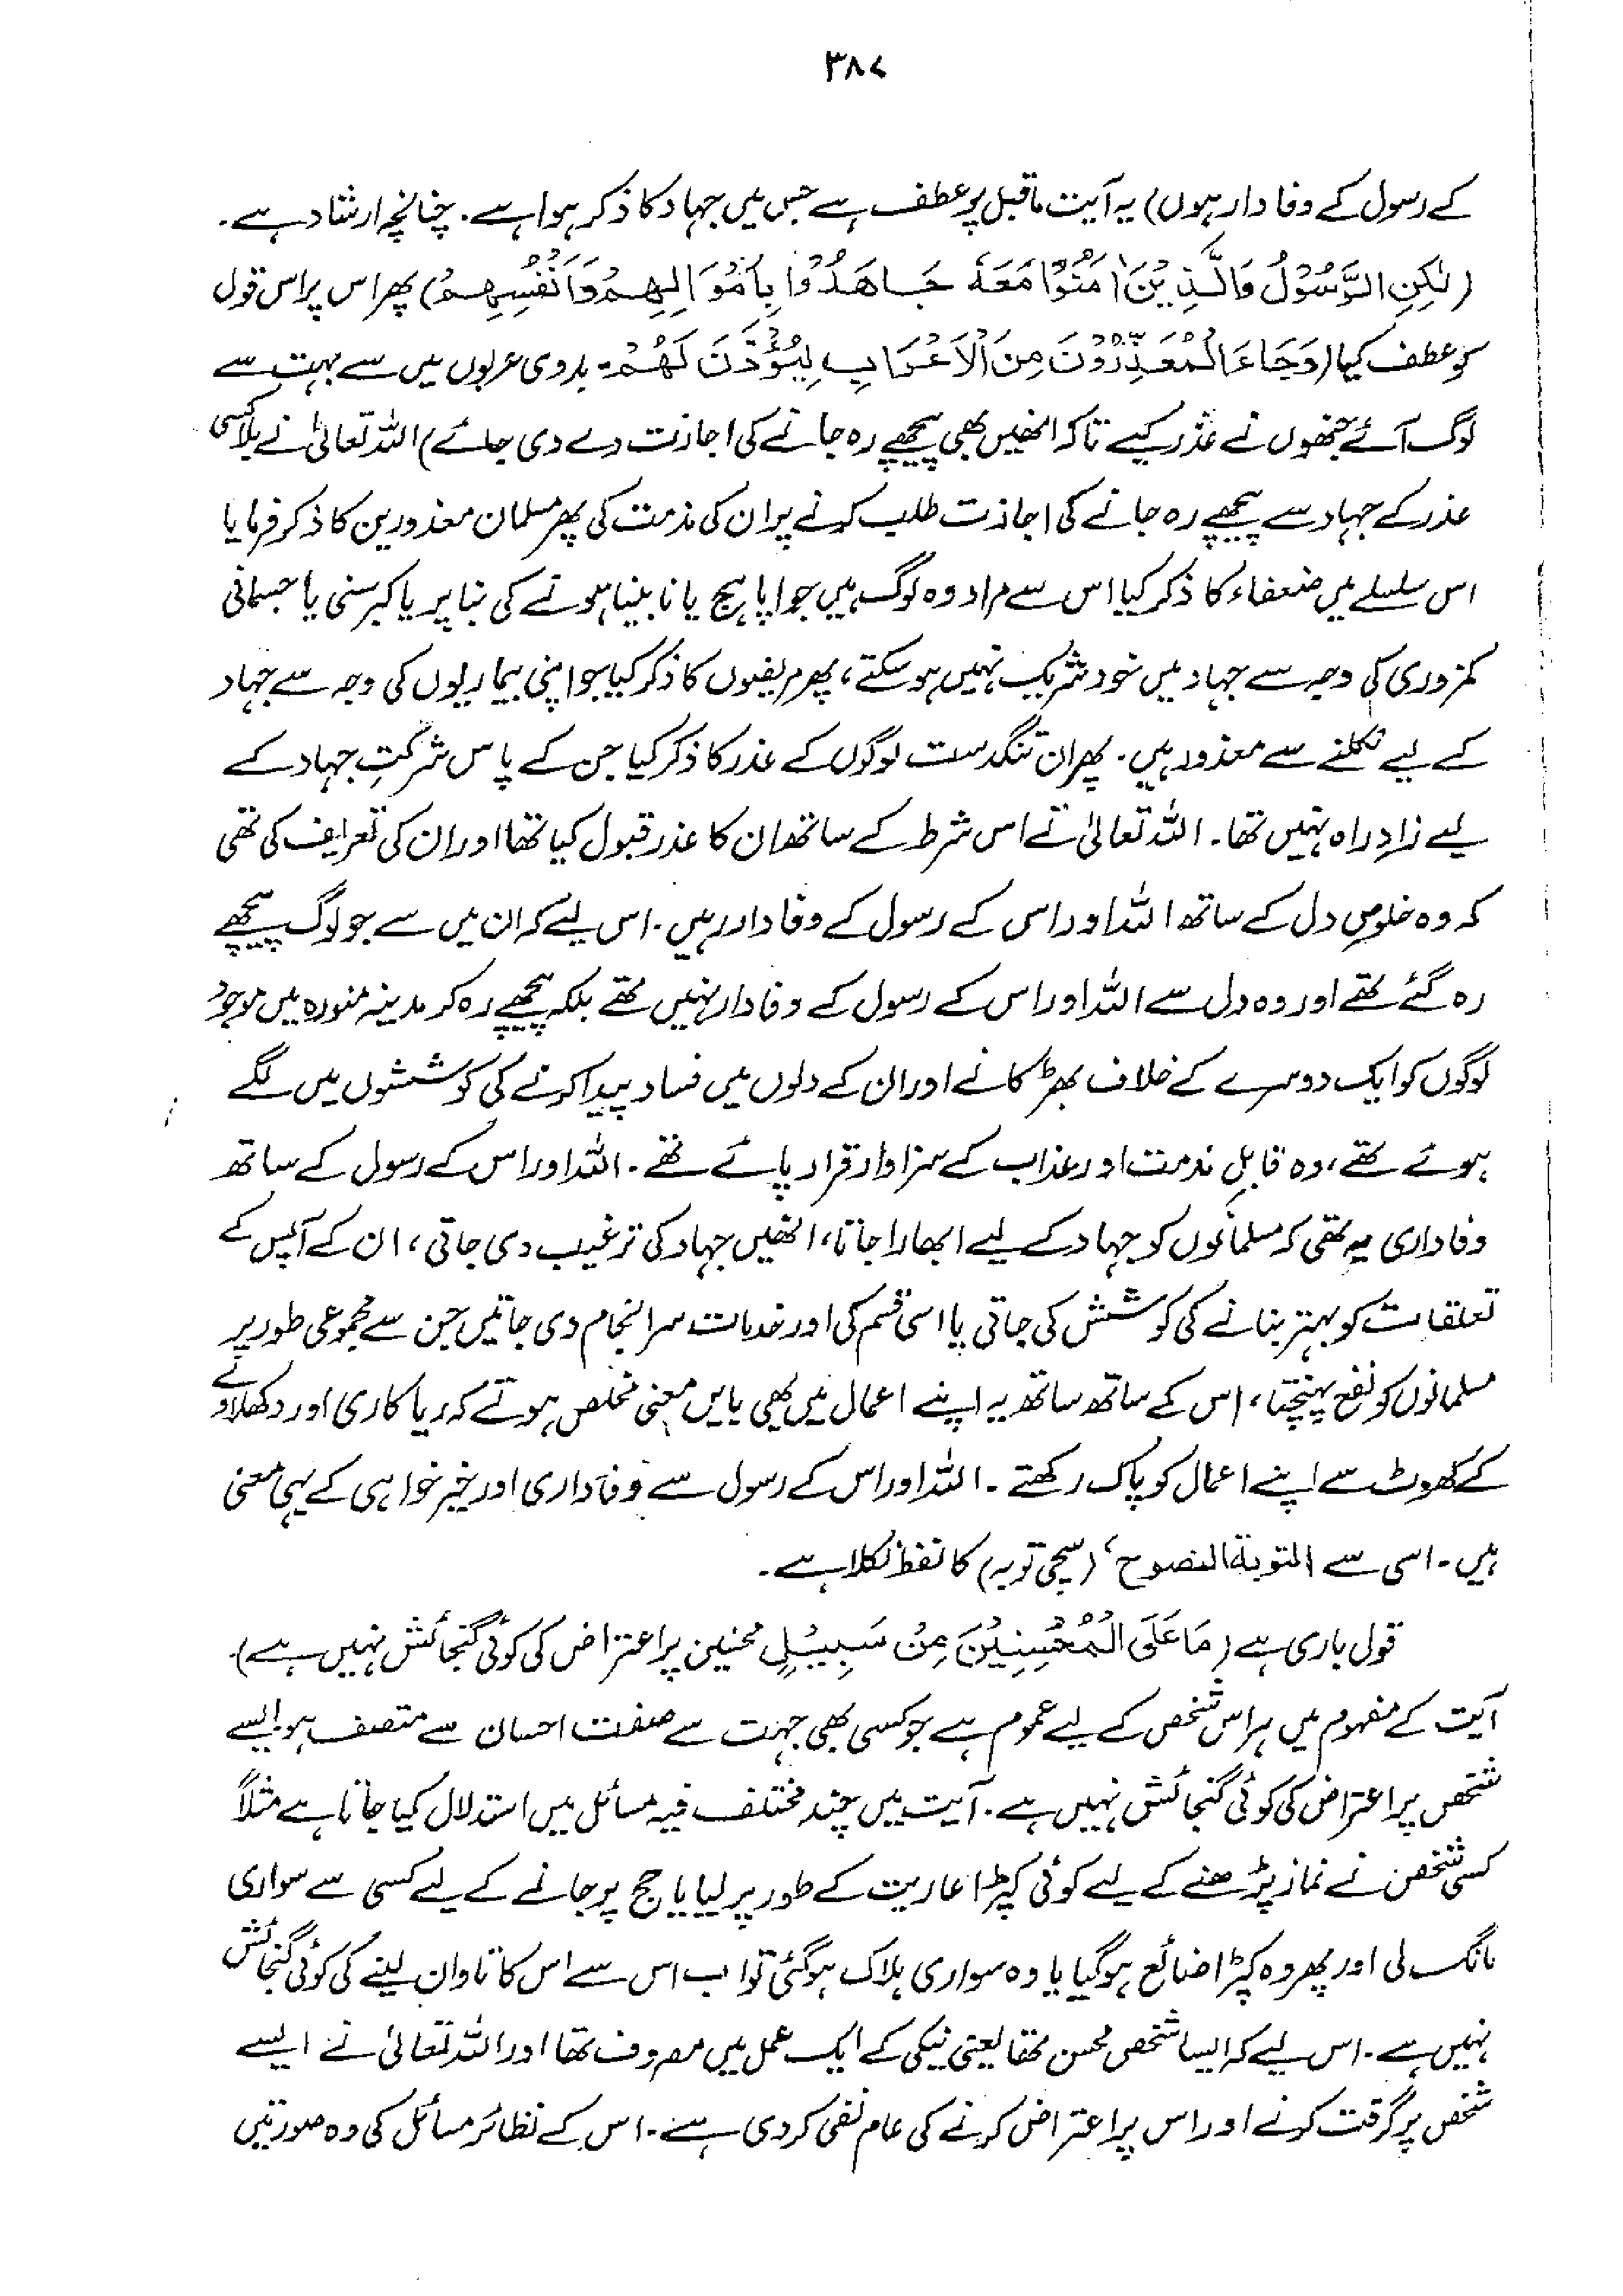 ۳۸۷
کے رسول کے وفادار ہوں) یہ آیت ماقبل پر عطف ہے جس میں جہاد کا ذکر ہوا ہے۔ چنانچہ ارشاد ہے۔
(لٰكِنِ الرَّسُوْلُ وَالَّذِيْنَ اٰمَنُوْا مَعَهٗ جَاهَدُوْا بِاَمْوَالِهِمْ وَاَنْفُسِهِمْ) پھر اس پر اس قول
کو عطف کیا (وَجَاءَ الْمُعَذِّرُوْنَ مِنَ الْاَعْرَابِ لِيُؤْذَنَ لَهُمْ۔ بدوی عربوں میں سے بہت سے
لوگ آئے جنھوں نے عذر کیے تاکہ انھیں بھی پیچھے رہ جانے کی اجازت دے دی جائے) اللہ تعالیٰ نے بلا کسی
عذر کے جہاد سے پیچھے رہ جانے کی اجازت طلب کرنے پر ان کی مذمت کی پھر مسلمان معذورین کا ذکر فرمایا
اس سلسلے میں ضعفاء کا ذکر کیا اس سے مراد وہ لوگ ہیں جو اپاہیج یا نابینا ہونے کی بنا پر یا کبرسنی یا جسمانی
کمزوری کی وجہ سے جہاد میں خود شریک نہیں ہو سکتے، پھر مریضوں کا ذکر کیا جو اپنی بیماریوں کی وجہ سے جہاد
کے لیے نکلنے سے معذور ہیں۔ پھر ان تنگدست لوگوں کے عذر کا ذکر کیا جن کے پاس شرکتِ جہاد کے
لیے زادِ راہ نہیں تھا۔ اللہ تعالیٰ نے اس شرط کے ساتھ ان کا عذر قبول کیا تھا اور ان کی تعریف کی تھی
کہ وہ خلوصِ دل کے ساتھ اللہ اور اس کے رسول کے وفادار رہیں۔ اس لیے کہ ان میں سے جو لوگ پیچھے
رہ گئے تھے اور وہ دل سے اللہ اور اس کے رسول کے وفادار نہیں تھے بلکہ پیچھے رہ کر مدینہ منورہ میں موجود
لوگوں کو ایک دوسرے کے خلاف بھڑکانے اور ان کے دلوں میں فساد پیدا کرنے کی کوششوں میں لگے
ہوئے تھے، وہ قابلِ مذمت اور عذاب کے سزاوار قرار پائے تھے۔ اللہ اور اس کے رسول کے ساتھ
وفاداری یہ تھی کہ مسلمانوں کو جہاد کے لیے ابھارا جاتا، انھیں جہاد کی ترغیب دی جاتی، ان کے آپس کے
تعلقات کو بہتر بنانے کی کوشش کی جاتی یا اسی قسم کی اور خدمات سرانجام دی جاتیں جن سے مجموعی طور پر
مسلمانوں کو نفع پہنچتا، اس کے ساتھ ساتھ یہ اپنے اعمال میں بھی بایں معنی مخلص ہوتے کہ ریاکاری اور دکھلاوے
کے کھوٹ سے اپنے اعمال کو پاک رکھتے۔ اللہ اور اس کے رسول سے وفاداری اور خیر خواہی کے یہی معنی
ہیں۔ اسی سے التوبة النصوح، (سچی توبہ) کا لفظ نکلا ہے۔
قول باری ہے (مَا عَلَى الْمُحْسِنِيْنَ مِنْ سَبِيْلٍ محسنین پر اعتراض کی کوئی گنجائش نہیں ہے)۔
آیت کے مفہوم میں ہر اس شخص کے لیے عموم ہے جو کسی بھی جہت سے صفت احسان سے متصف ہو ایسے
شخص پر اعتراض کی کوئی گنجائش نہیں ہے۔ آیت میں چند مختلف فیہ مسائل میں استدلال کیا جاتا ہے مثلاً
کسی شخص نے نماز پڑھنے کے لیے کوئی کپڑا عاریت کے طور پر لیا یا حج پر جانے کے لیے کسی سے سواری
مانگ لی اور پھر وہ کپڑا ضائع ہو گیا یا وہ سواری ہلاک ہو گئی تو اب اس سے اس کا تاوان لینے کی کوئی گنجائش
نہیں ہے۔ اس لیے کہ ایسا شخص محسن تھا یعنی نیکی کے ایک عمل میں مصروف تھا اور اللہ تعالیٰ نے ایسے
شخص پر گرفت کرنے اور اس پر اعتراض کرنے کی عام نفی کر دی ہے۔ اس کے نظائر مسائل کی وہ صورتیں